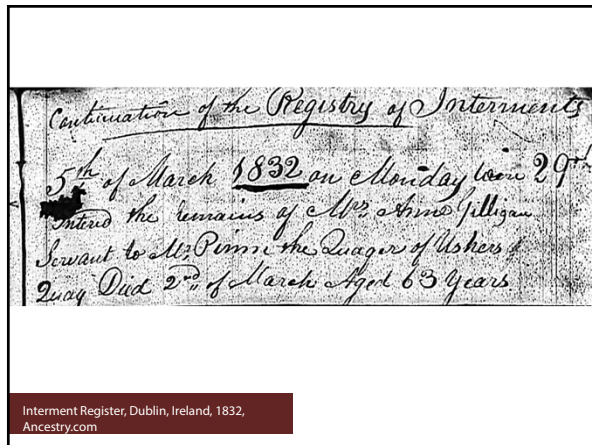 Continuation of the Registry of Interments
5th of March 1832 on Monday were 29
Interd the remains of Mrs Anne Gilligan
Servant to Mr Pimm the Quager of Ushers
Quay Died 2nd of March Aged 63 Years
Interment Register, Dublin, Ireland, 1832,
Ancestry.com